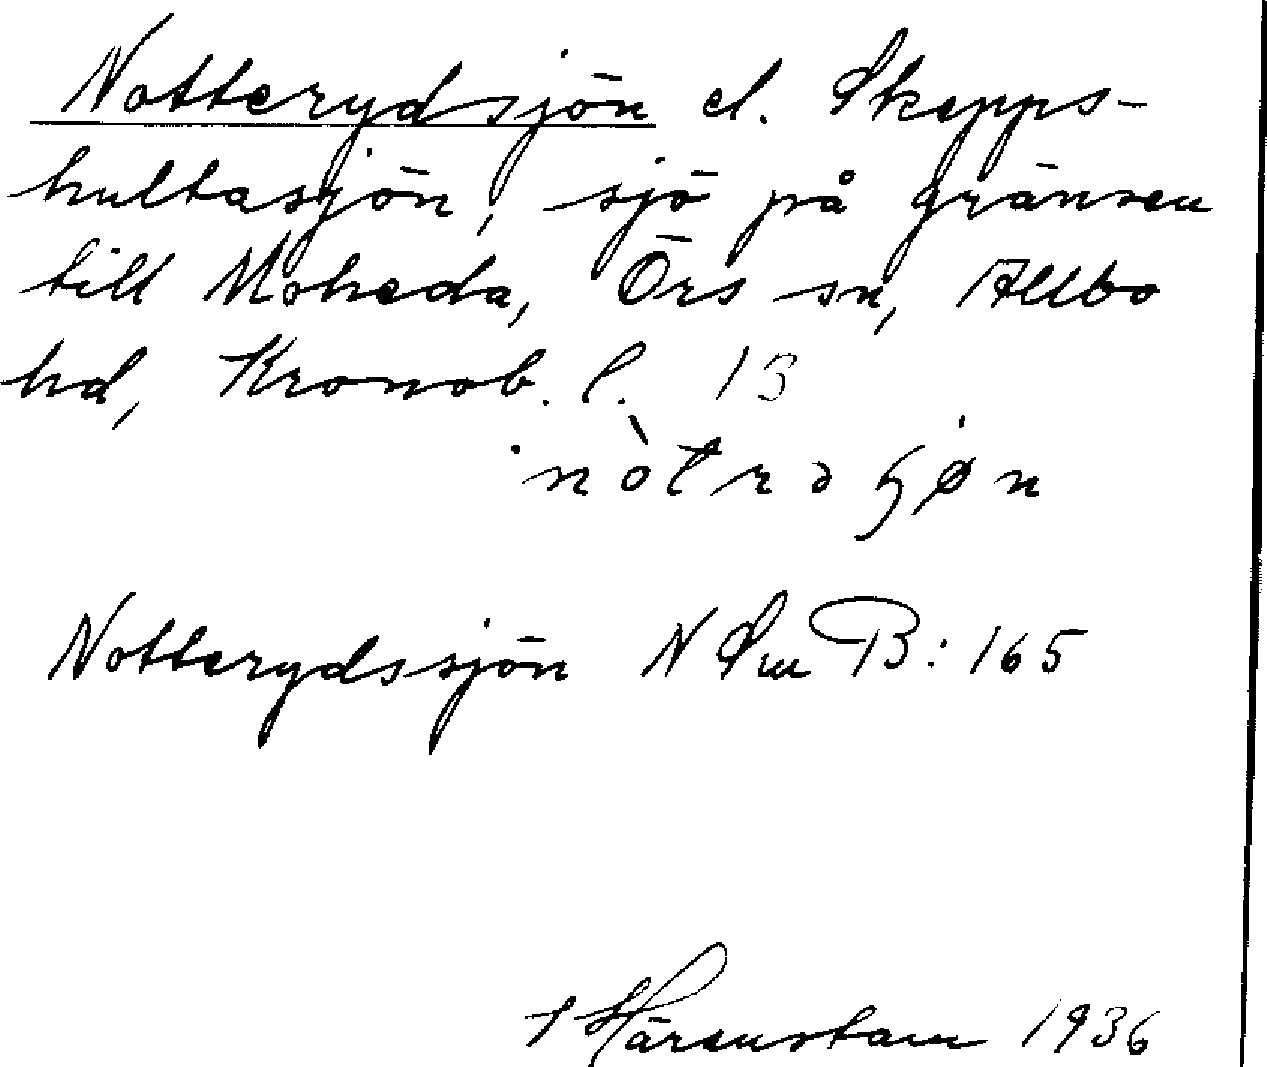 Notterydsjön el. Skepps-
hultasjön, sjö på gränsen
till Moheda, Örs sn, Allbo
hd, Kronob. l. 13
nòtrəɧøn
Notterydssjön N Sm B: 165
Härenstam 1936